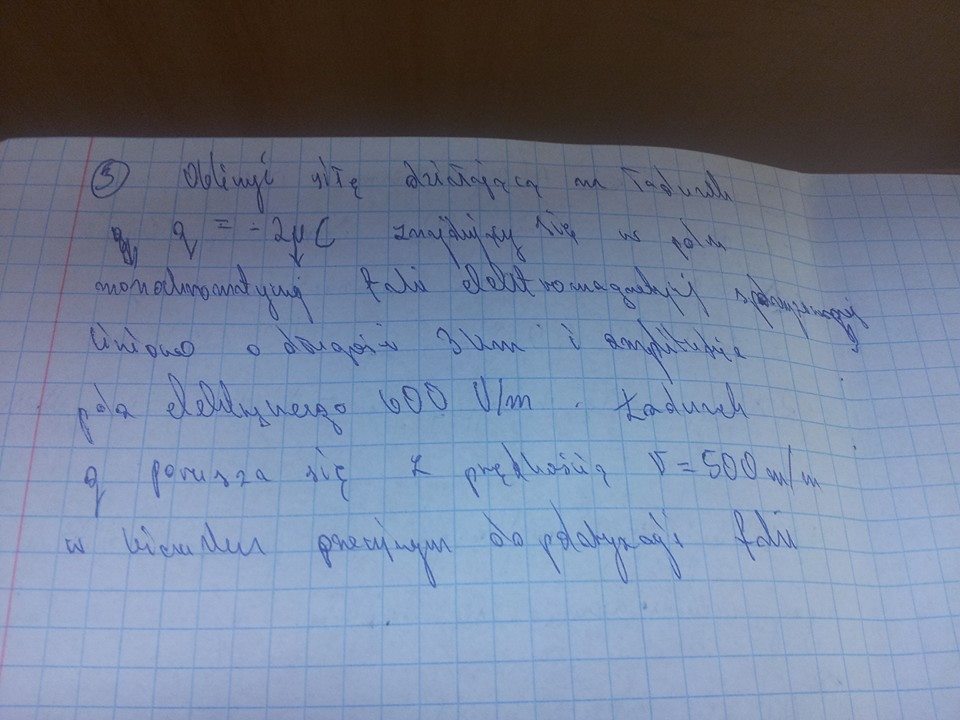 ③ Obliczyć siłę działającą na ładunek
q = -2μC znajdujący się w polu
monochromatycznej fali elektromagnetycznej spolaryzowanej
liniowo o długości 3 km i amplitudzie
pola elektrycznego 600 V/m. Ładunek
q porusza się z prędkością V = 500 m/m
w kierunku przeciwnym do polaryzacji fali